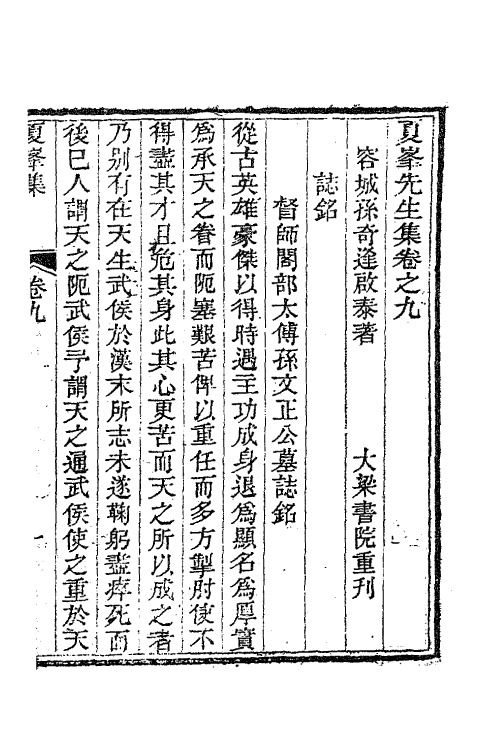 夏峯先生集卷之九
容城孫奇逢啟泰著　大梁書院重刊
誌銘
督師閣部太傅孫文正公墓誌銘
從古英雄豪傑以得時遇主功成身退爲顯名爲厚實
爲承天之眷而阨塞艱苦俾以重任而多方掣肘使不
得盡其才且危其身此其心更苦而天之所以成之者
乃别有在天生武侯於漢末所志未遂鞠躬盡瘁死而
後已人謂天之阨武侯予謂天之通武侯使之重於天
夏峯集
卷九
一